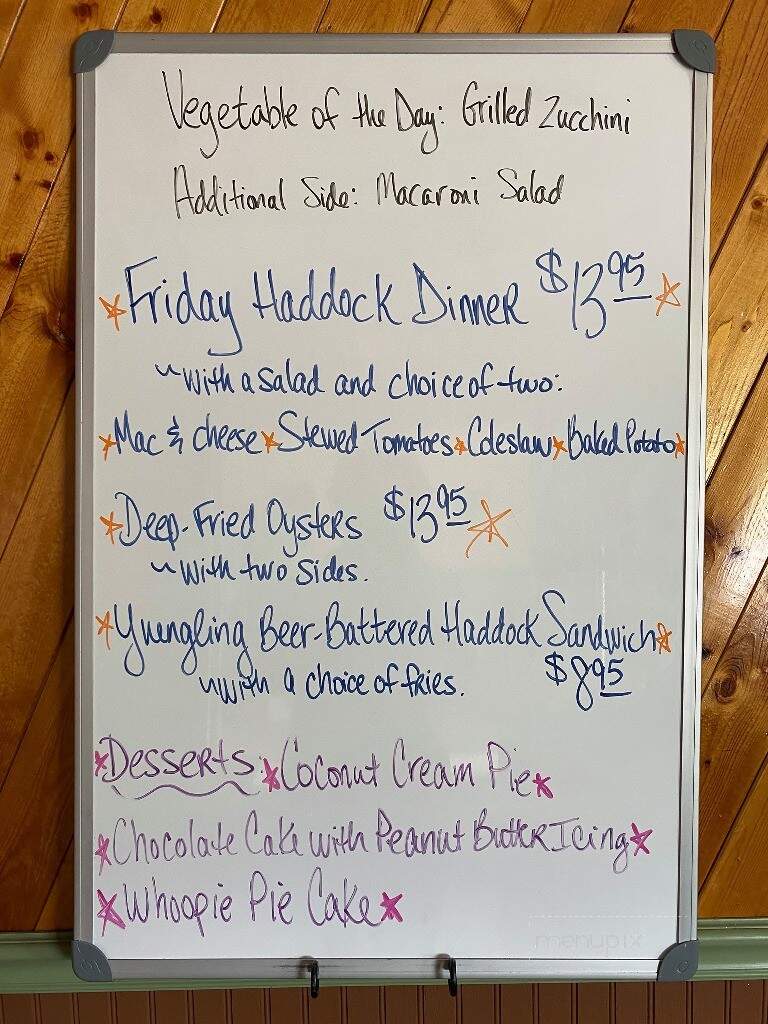 Vegetable of the Day: Grilled Zucchini
Additional Side: Macaroni Salad
Friday Haddock Dinner $13.95
~with a salad and choice of two:
Mac & cheese Stewed Tomatoes Coleslaw Baked Potato
Deep-Fried Oysters $13.95
~with two sides.
Yuengling Beer-Battered Haddock Sandwich
~with a choice of fries. $8.95
Desserts: Coconut Cream Pie
Chocolate Cake with Peanut Butter Icing
Whoopie Pie Cake
menupix